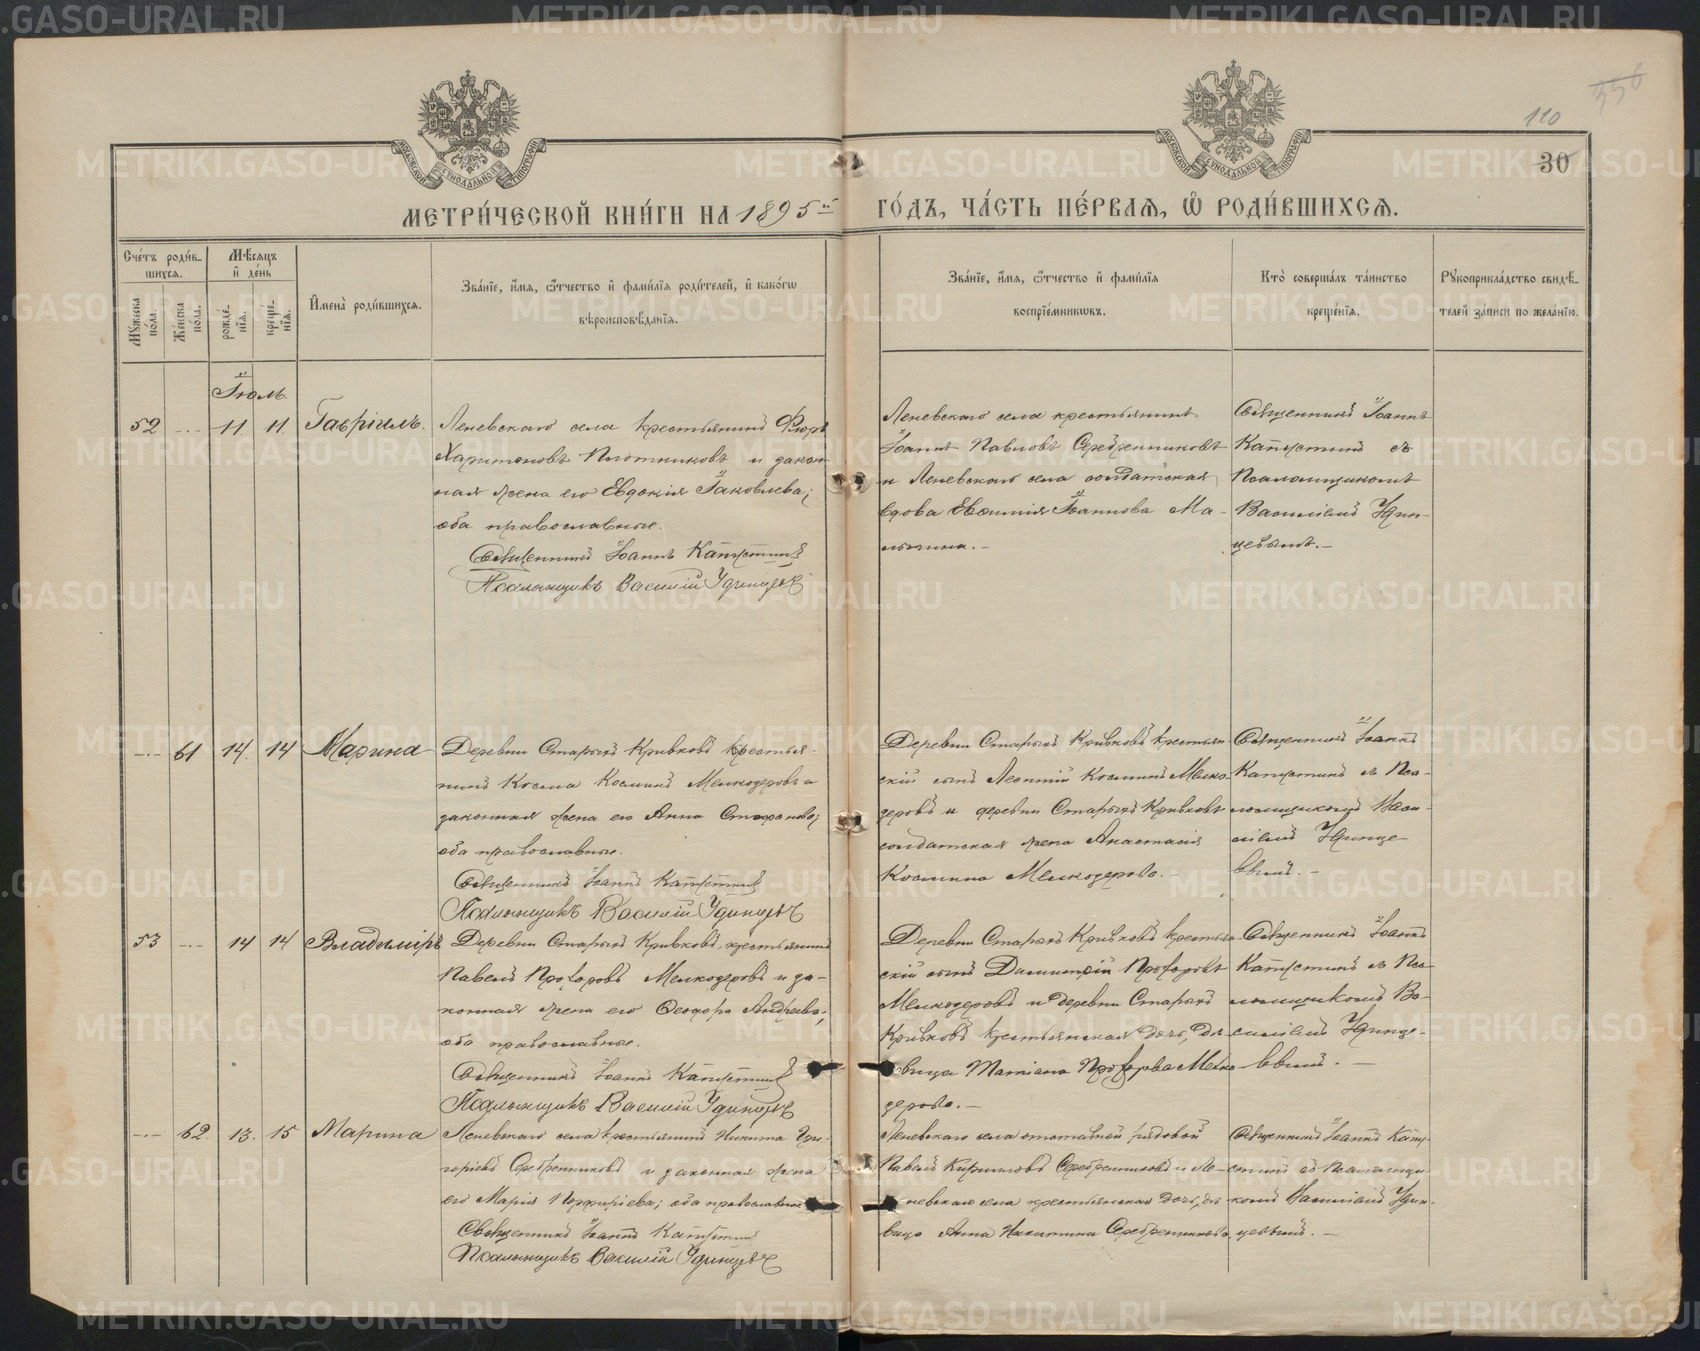 356
110
30
МЕТРИ́ЧЕСКОЙ КНИ́ГИ НА 1895й ГО́ДЪ, ЧА́СТЬ ПЕ́РВАѦ, Ѿ РОДИ́ВШИХСѦ.
Сче́тъ роди́вшихсѧ.
Мꙋ́жеска по́ла.
Же́нска по́ла.
Мѣ́сѧцъ и҆ де́нь
рожде́нїѧ.
креще́нїѧ.
И҆мена̀ роди́вшихсѧ.
Зва́нїе, и҆́мѧ, ѻ҆́тчество и҆ фами́лїѧ роди́телей, и҆ како́гѡ
вѣроисповѣ́данїѧ.
Зва́нїе, и҆́мѧ, ѻ҆́тчество и҆ фами́лїѧ
воспрїе́мникѡвъ.
Кто̀ соверша́лъ та́инство
креще́нїѧ.
Рꙋкоприкла́дство свидѣ́телей за́писи по жела́нїю.
Іюль.
52 11. 11. Гавріилъ.
Леневскаго села крестьянинъ Флоръ
Харитоновъ Плотниковъ и закон
ная жена его Евдокія Іаковлева;
оба православные.
Священникъ Іоаннъ Капустинъ
Псаломщикъ Василій Удинцевъ
Леневскаго села крестьянинъ
Іоаннъ Павловъ Серебренниковъ
и Леневскаго села солдатская
вдова Евѳимія Іоаннова Ма-
лыгина.-
Священникъ Іоаннъ
Капустинъ съ
Псаломщикомъ
Василіемъ Удин-
цевымъ.-
61 14. 14 Марина
Деревни Старыхъ Кривковъ крестья-
нинъ Косма Косминъ Мелкозеровъ и
законная жена его Анна Стефанова;
оба православные.
Священникъ Іоаннъ Капустинъ
Псаломщикъ Василій Удинцевъ
Деревни Старыхъ Кривковъ крестьян
скій сынъ Леонтій Косминъ Мелко-
зеровъ и деревни Старыхъ Кривковъ
солдатская жена Анастасія
Космина Мелкозерова.-
Священникъ Іоаннъ
Капустинъ съ Пса-
ломщикомъ Васи-
ліемъ Удинце-
вымъ.-
53 14 14 Владиміръ
Деревни Старыхъ Кривковъ, крестьянинъ
Павелъ Прохоровъ Мелкозеровъ и за-
конная жена его Ѳеодора Андреева;
оба православные.
Священникъ Іоаннъ Капустинъ
Псаломщикъ Василій Удинцевъ
Деревни Старыхъ Кривковъ крестьян
скій сынъ Димитрій Прохоровъ
Мелкозеровъ и деревни Старыхъ
Кривковъ крестьянская дочь, дѣ-
вица Татіана Прохорова Мелко-
зерова.-
Священникъ Іоаннъ
Капустинъ съ Пса-
ломщикомъ Ва-
силіемъ Удинце-
вымъ.-
62 13. 15 Марина
Леневскаго села крестьянинъ Никита Гри-
горіевъ Серебренниковъ и законная жена
его Марія Порфиріева; оба православные
Священникъ Іоаннъ Капустинъ
Псаломщикъ Василій Удинцевъ
Леневскаго села отставной рядовой
Павелъ Кирилловъ Серебренниковъ и Ле-
невскаго села крестьянская дочь, дѣ-
вица Анна Никитина Серебренникова
Священникъ Іоаннъ Капу-
стинъ съ Псаломщи-
комъ Василіемъ Удин-
цевымъ.-
METRIKI.GASO-URAL.RU